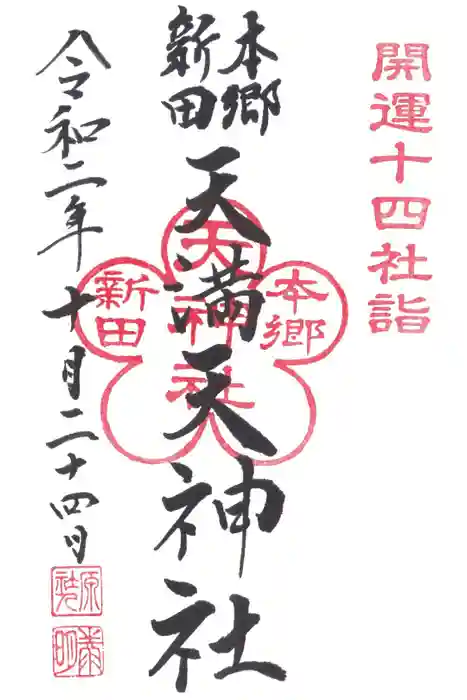 開運十四社詣
本郷
新田
天満天神社
本郷
新田
天神社
令和二年十月二十四日